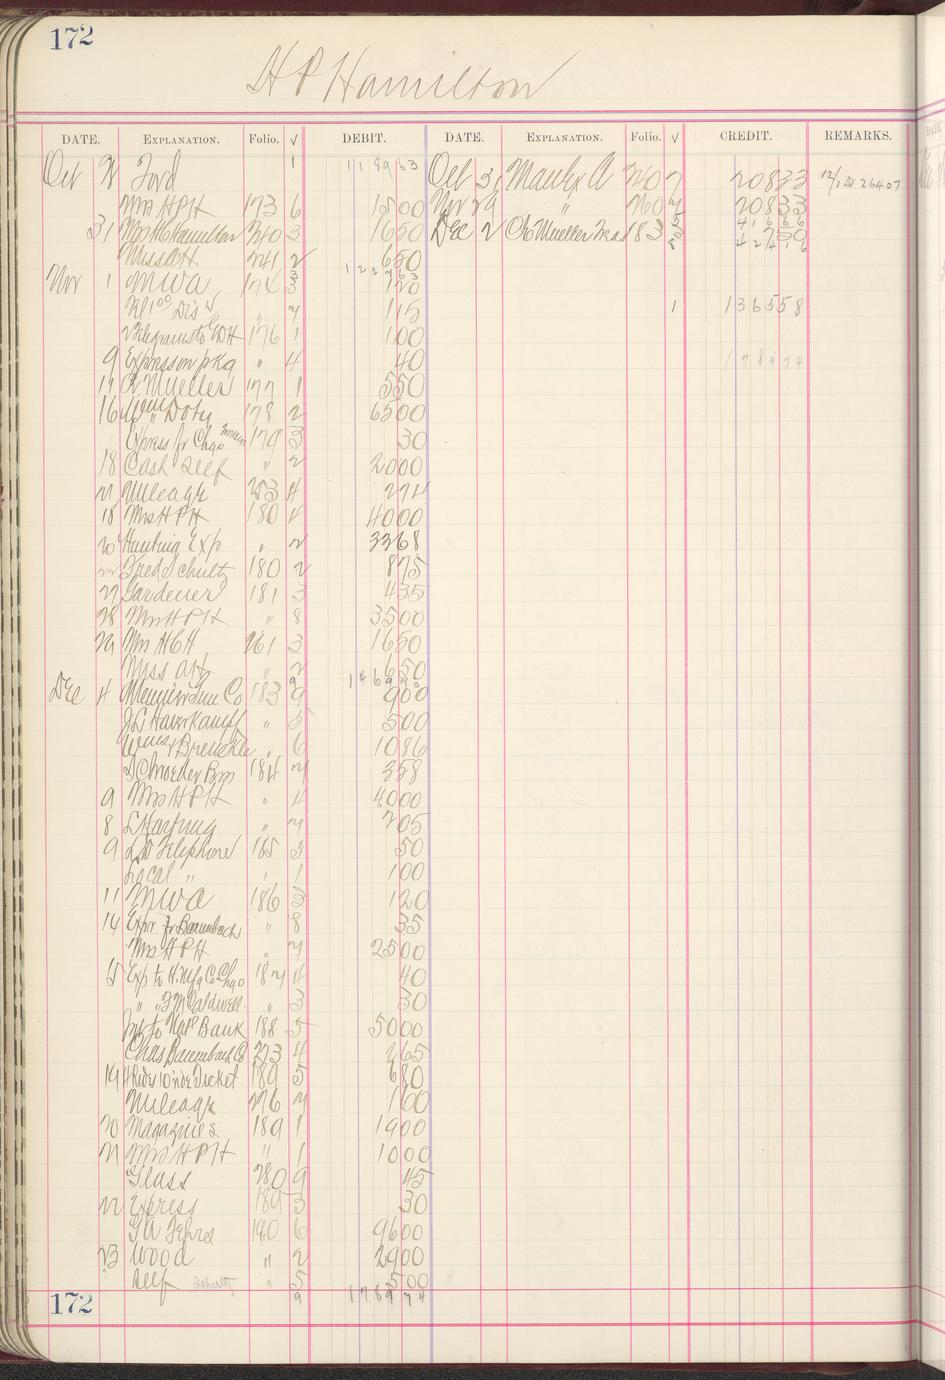 172
H P Hamilton
DATE. EXPLANATION. Folio. √ DEBIT. DATE. EXPLANATION. Folio. √ CREDIT. REMARKS.
Oct Ford 1 1189 63 Oct 31 260 7 208 33 12/1 Dr 264 07
Mrs HPH 173 6 15 00 Nov 29 " 260 7 208 33
31 Mrs H C Hamilton 240 3 16 50 Dec 2 Ch Mueller 183
Miss AH 241 2 6 50
1227 63
Nov 1 MWA 174 3 1 20
1 15 1 1365 58
Telegrams to 176 1 1 00
9 Express on pkg " 4 40 1789 74
11 R. Mueller 177 1 5 50
16 Wm Doty 178 2 65 00
Express fr Chgo 179 3 30
18 Cash Self " 2 20 00
21 Mileage 253 4 2 74
18 Mrs HPH 180 4 40 00
20 Hunting Exp " 2 33 68
22 Fred Schultz 180 2 8 75
27 Gardener 181 3 4 35
28 Mrs HPH " 8 35 00
29 Mrs HCH 261 3 16 50
Miss AH " 2 6 50
Dec 4 Co 183 9 9 00
J L Haverkampf " 5 5 00
6 10 86
Schroeder Bros 184 7 3 58
9 Mrs HPH " 4 40 00
8 L Hartung " 7 7 05
9 L D Telephone 185 5 50
Local " " 1 1 00
11 MWA 186 3 1 20
14 Expr. fr Baumbach " 8 35
Mrs HPH " 7 25 00
15 Exp to H. Mfg Co Chgo 187 4 40
" " Caldwell " 3 30
Int to Nat Bank 188 5 50 00
Chas Baumbach Co 273 4 2 65
19 4 Rides 10 ride Ticket 189 5 6 80
Mileage 276 7 1 60
20 Magazines 189 1 19 00
21 Mrs HPH " 1 10 00
Glass 280 9 45
22 Express 189 3 30
190 6 96 00
23 Wood " 2 29 00
Self Schultz " 5 5 00
9 1789 74
172